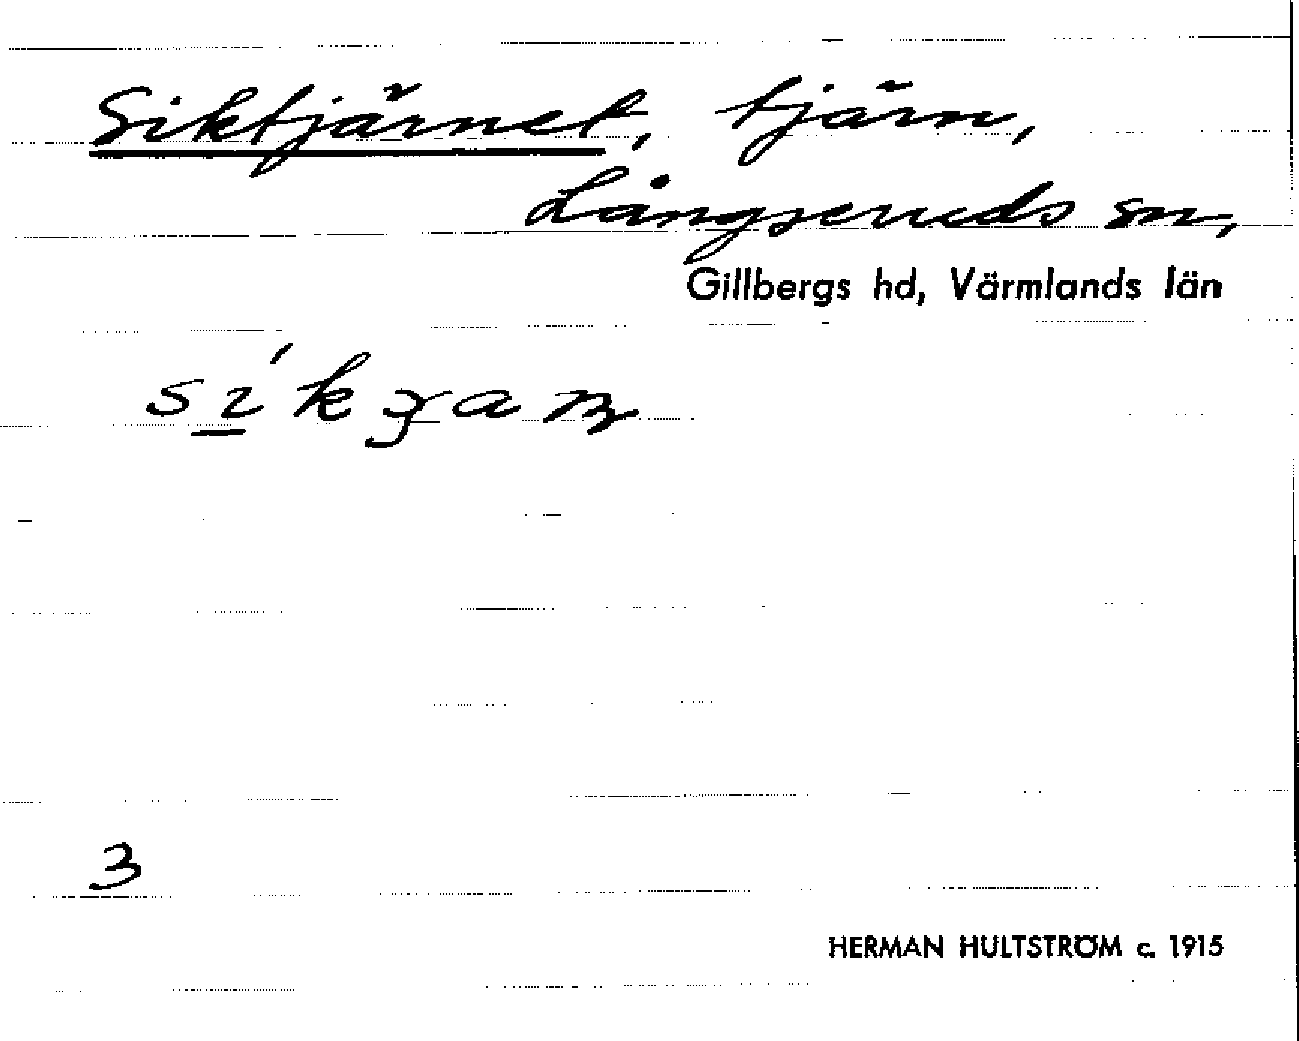 Siktjärnet, tjärn,
Långseruds sn,
Gillbergs hd, Värmlands län
3
HERMAN HULTSTRÖM c. 1915